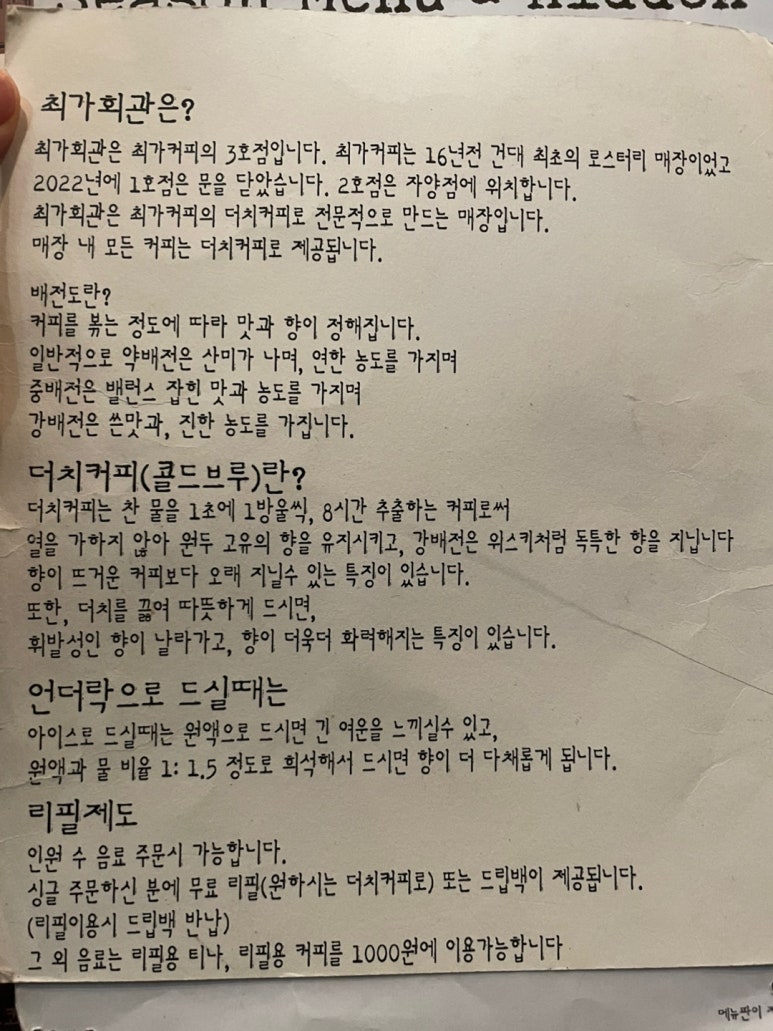 Season Menu & Hidden
최가회관은?
최가회관은 최가커피의 3호점입니다. 최가커피는 16년전 건대 최초의 로스터리 매장이었고
2022년에 1호점은 문을 닫았습니다. 2호점은 자양점에 위치합니다.
최가회관은 최가커피의 더치커피로 전문적으로 만드는 매장입니다.
매장 내 모든 커피는 더치커피로 제공됩니다.
배전도란?
커피를 볶는 정도에 따라 맛과 향이 정해집니다.
일반적으로 약배전은 산미가 나며, 연한 농도를 가지며
중배전은 밸런스 잡힌 맛과 농도를 가지며
강배전은 쓴맛과, 진한 농도를 가집니다.
더치커피(콜드브루)란?
더치커피는 찬 물을 1초에 1방울씩, 8시간 추출하는 커피로써
열을 가하지 않아 원두 고유의 향을 유지시키고, 강배전은 위스키처럼 독특한 향을 지닙니다
향이 뜨거운 커피보다 오래 지닐수 있는 특징이 있습니다.
또한, 더치를 끓여 따뜻하게 드시면,
휘발성인 향이 날라가고, 향이 더욱더 화력해지는 특징이 있습니다.
언더락으로 드실때는
아이스로 드실때는 원액으로 드시면 긴 여운을 느끼실수 있고,
원액과 물 비율 1: 1.5 정도로 희석해서 드시면 향이 더 다채롭게 됩니다.
리필제도
인원 수 음료 주문시 가능합니다.
싱글 주문하신 분에 무료 리필(원하시는 더치커피로) 또는 드립백이 제공됩니다.
(리필이용시 드립백 반납)
그 외 음료는 리필용 티나, 리필용 커피를 1000원에 이용가능합니다
메뉴판이